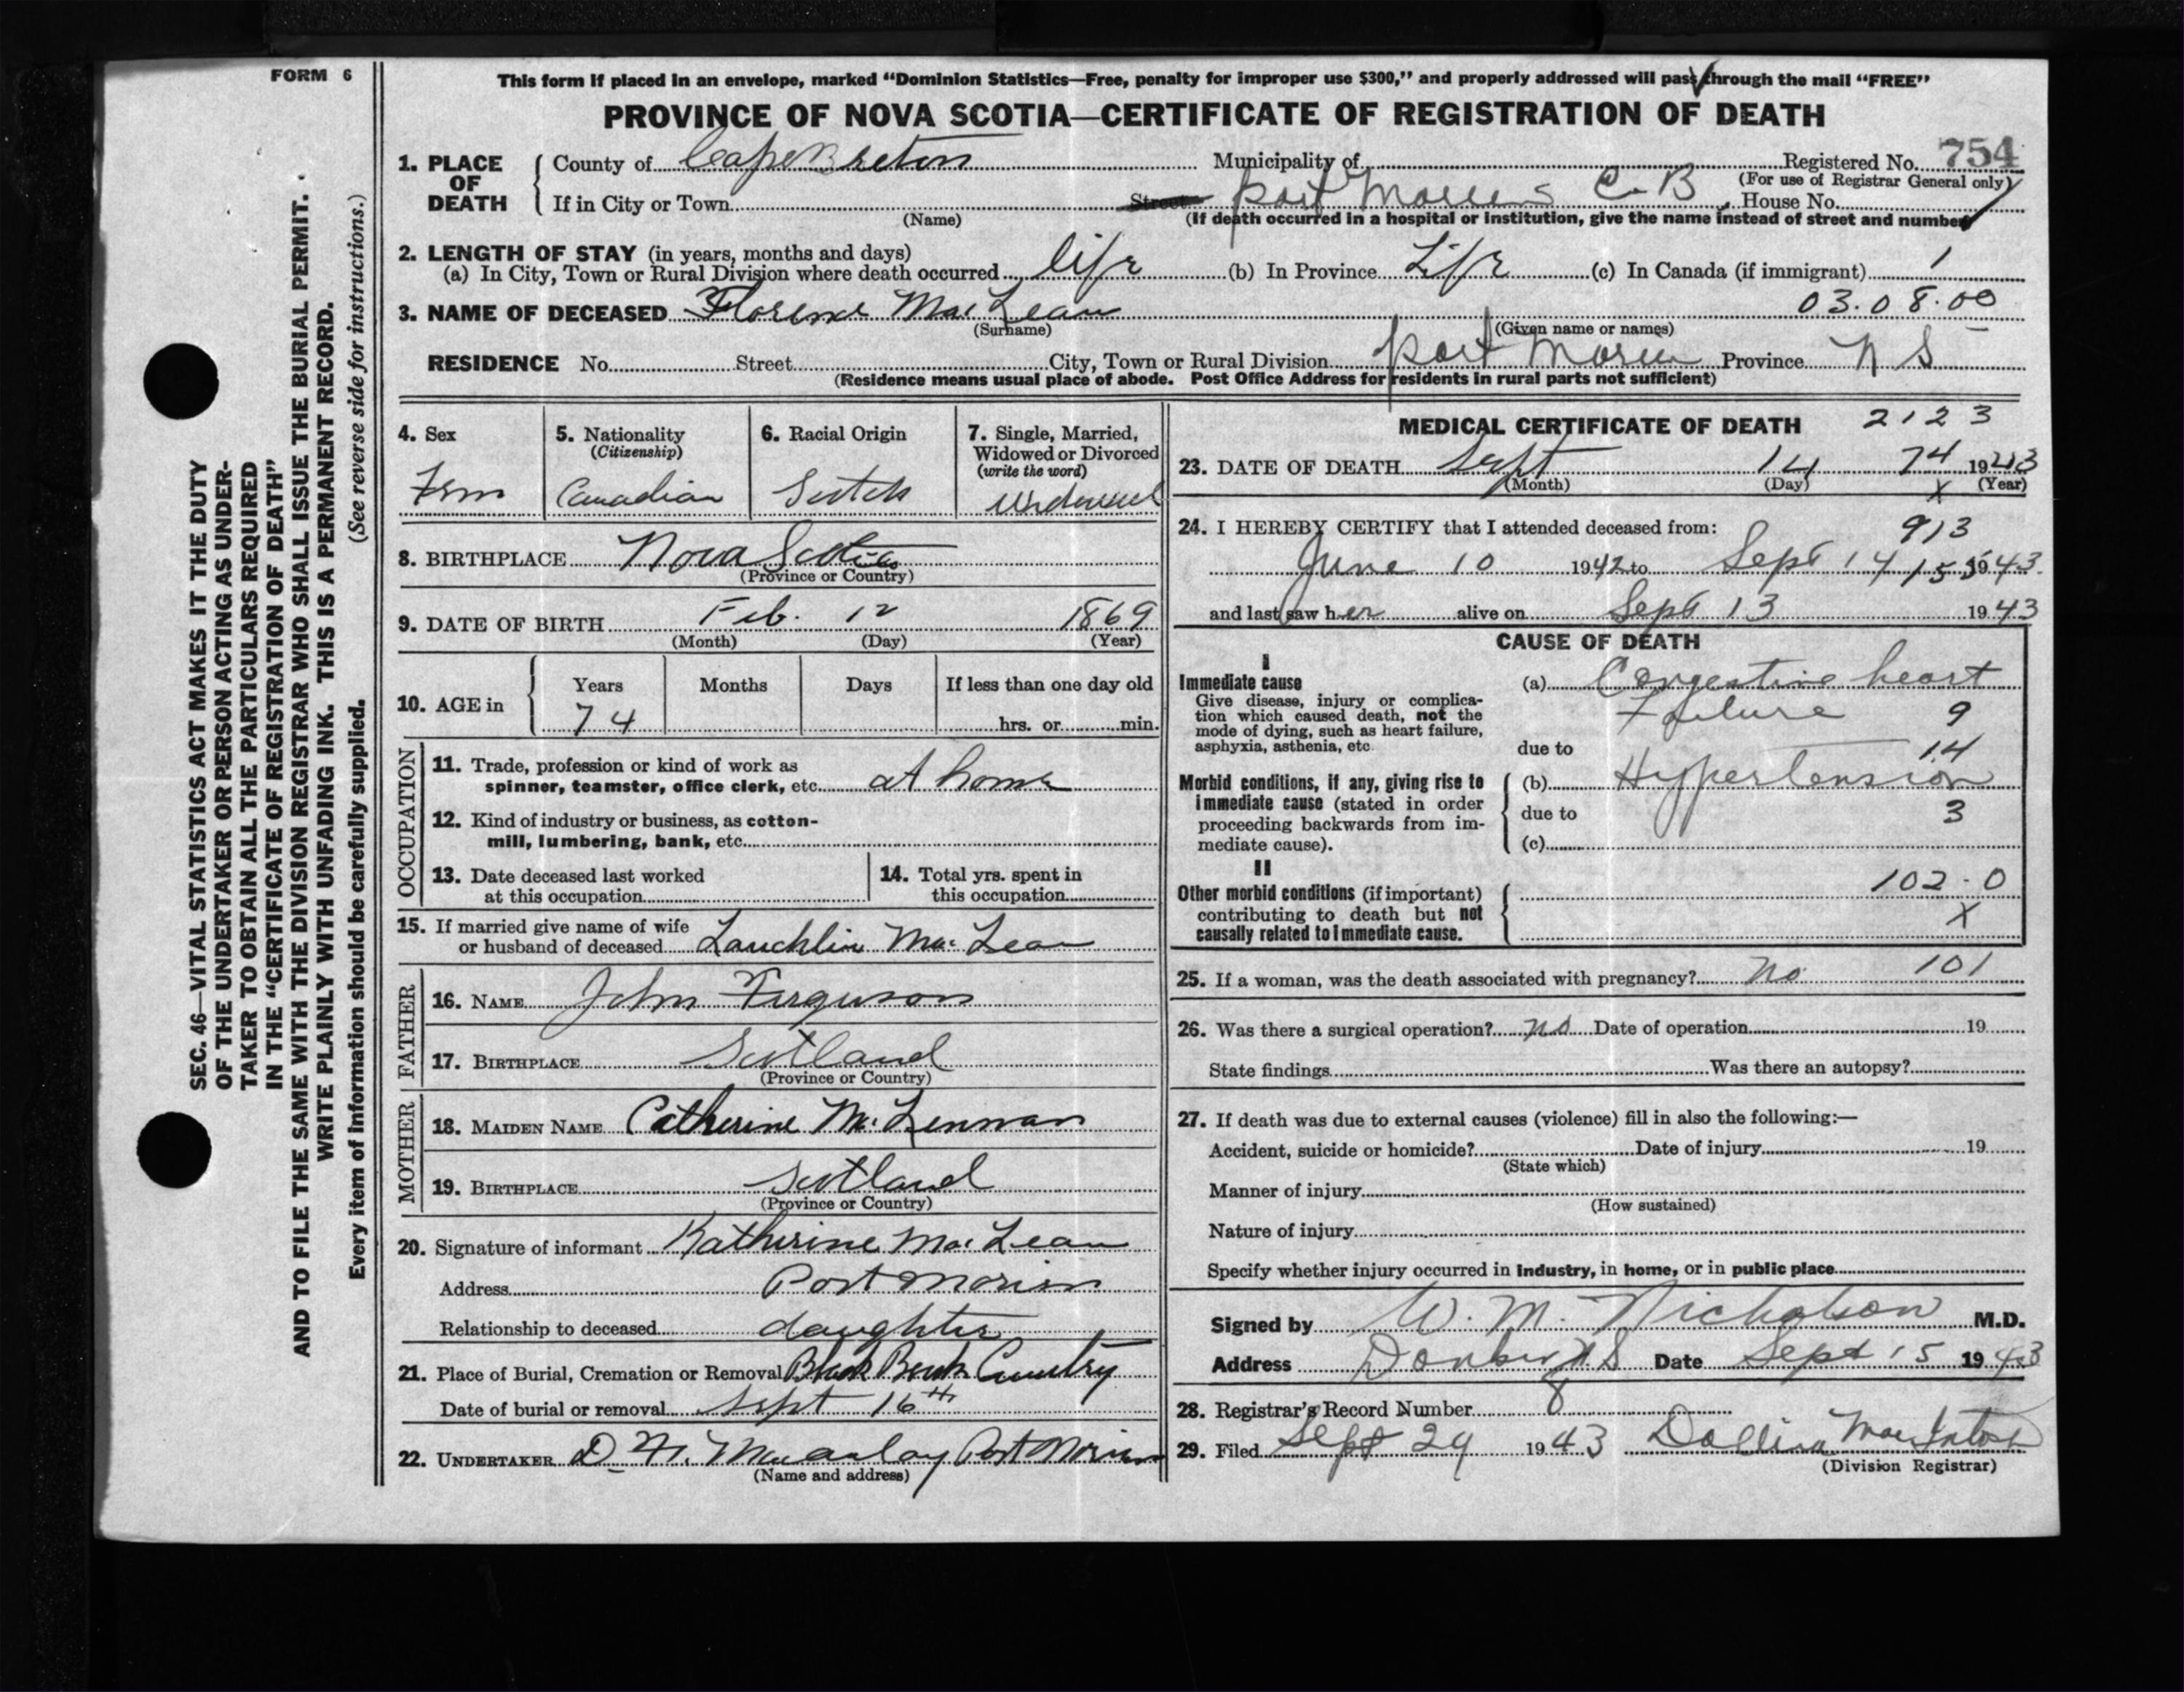 FORM 6
This form if placed in an envelope, marked “Dominion Statistics—Free, penalty for improper use $300,” and properly addressed will pass through the mail “FREE”
PROVINCE OF NOVA SCOTIA—CERTIFICATE OF REGISTRATION OF DEATH
1. PLACE OF DEATH County of Cape Breton Municipality of Registered No. 754
(For use of Registrar General only)
If in City or Town Street Port Morien C-B House No.
(Name) (If death occurred in a hospital or institution, give the name instead of street and number)
2. LENGTH OF STAY (in years, months and days)
(a) In City, Town or Rural Division where death occurred life (b) In Province Life (c) In Canada (if immigrant) 1
3. NAME OF DECEASED Florence Mac Lean 03.08.00
(Surname) (Given name or names)
RESIDENCE No. Street City, Town or Rural Division Port Morien Province N S
(Residence means usual place of abode. Post Office Address for residents in rural parts not sufficient)
4. Sex Fem
5. Nationality (Citizenship) Canadian
6. Racial Origin Scotch
7. Single, Married, Widowed or Divorced (write the word) Widowed
8. BIRTHPLACE Nova Scotia
(Province or Country)
9. DATE OF BIRTH Feb. 12 1869
(Month) (Day) (Year)
10. AGE in Years Months Days If less than one day old
74 hrs. or min.
OCCUPATION
11. Trade, profession or kind of work as
spinner, teamster, office clerk, etc. at home
12. Kind of industry or business, as cotton-
mill, lumbering, bank, etc.
13. Date deceased last worked
at this occupation
14. Total yrs. spent in
this occupation
15. If married give name of wife
or husband of deceased Lauchlin Mac Lean
FATHER
16. NAME John Ferguson
17. BIRTHPLACE Scotland
(Province or Country)
MOTHER
18. MAIDEN NAME Catherine Mc Lennan
19. BIRTHPLACE Scotland
(Province or Country)
20. Signature of informant Katherine Mac Lean
Address Port Morien
Relationship to deceased daughter
21. Place of Burial, Cremation or Removal Black Brook Cemetry
Date of burial or removal Sept 16th
22. UNDERTAKER Macaulay Port Morien
(Name and address)
MEDICAL CERTIFICATE OF DEATH 2123
23. DATE OF DEATH Sept 14 74 1943
(Month) (Day) X (Year)
24. I HEREBY CERTIFY that I attended deceased from: 913
June 10 1942 to Sept 14 1943
and last saw her alive on Sept 13 1943
CAUSE OF DEATH
I
Immediate cause
Give disease, injury or complica-
tion which caused death, not the
mode of dying, such as heart failure,
asphyxia, asthenia, etc.
(a) Congestive heart
Failure 9
due to 14
Morbid conditions, if any, giving rise to
immediate cause (stated in order
proceeding backwards from im-
mediate cause).
(b) Hypertension
due to 3
(c)
II
Other morbid conditions (if important)
contributing to death but not
causally related to immediate cause.
102-0
X
25. If a woman, was the death associated with pregnancy? No 101
26. Was there a surgical operation? No Date of operation 19
State findings Was there an autopsy?
27. If death was due to external causes (violence) fill in also the following:—
Accident, suicide or homicide? Date of injury 19
(State which)
Manner of injury
(How sustained)
Nature of injury
Specify whether injury occurred in industry, in home, or in public place
Signed by W. M. Nicholson M.D.
Address N S Date Sept 15 1943
28. Registrar's Record Number 8
29. Filed Sept 29 1943 MacIntosh
(Division Registrar)
SEC. 46—VITAL STATISTICS ACT MAKES IT THE DUTY
OF THE UNDERTAKER OR PERSON ACTING AS UNDER-
TAKER TO OBTAIN ALL THE PARTICULARS REQUIRED
IN THE “CERTIFICATE OF REGISTRATION OF DEATH”
AND TO FILE THE SAME WITH THE DIVISION REGISTRAR WHO SHALL ISSUE THE BURIAL PERMIT.
WRITE PLAINLY WITH UNFADING INK. THIS IS A PERMANENT RECORD.
Every item of information should be carefully supplied. (See reverse side for instructions.)